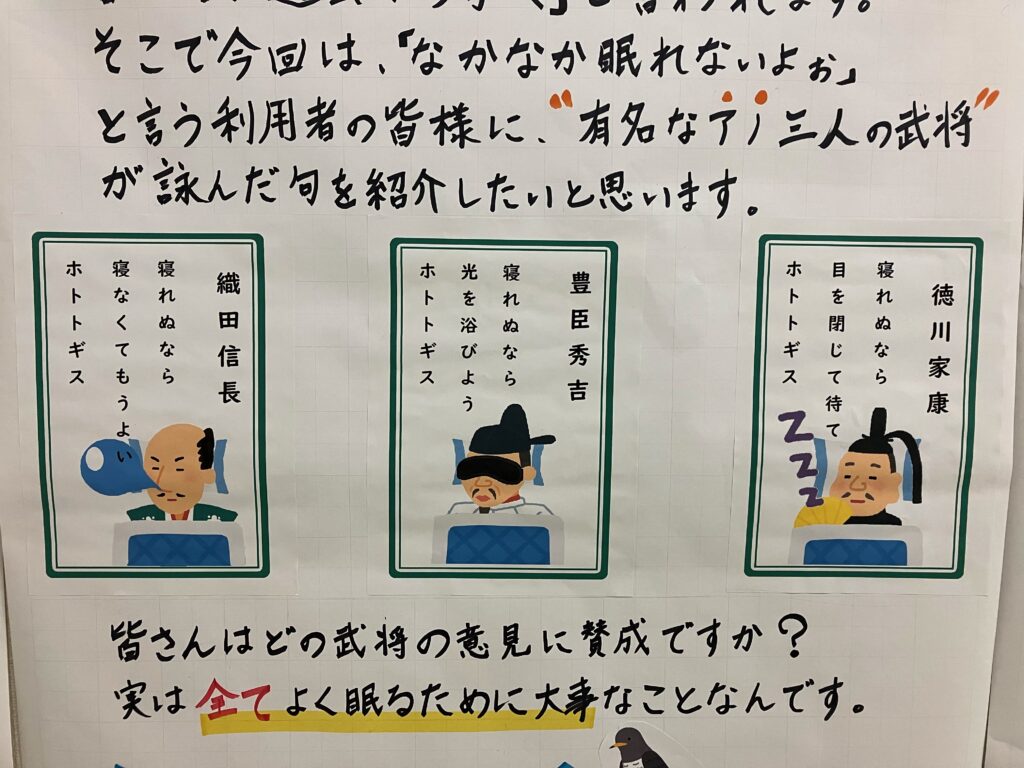 と言われます。
そこで今回は、「なかなか眠れないよぉ」
と言う利用者の皆様に、"有名なアノ三人の武将"
が詠んだ句を紹介したいと思います。
織田信長
寝れぬなら
寝なくてもうよい
ホトトギス
豊臣秀吉
寝れぬなら
光を浴びよう
ホトトギス
徳川家康
寝れぬなら
目を閉じて待て
ホトトギス
Z
Z
Z
皆さんはどの武将の意見に賛成ですか？
実は全てよく眠るために大事なことなんです。